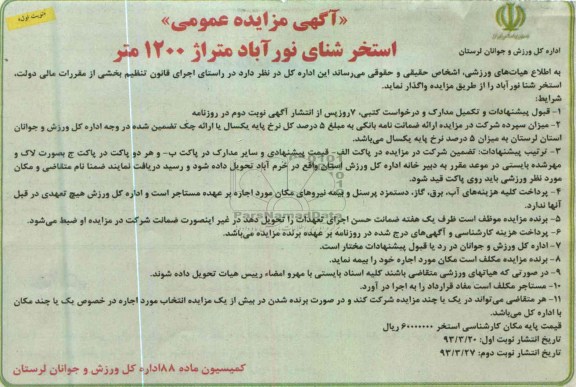 نوبت اول
«آگهی مزایده عمومی»
استخر شنای نورآباد متراژ ۱۲۰۰ متر
اداره کل ورزش و جوانان لرستان
به اطلاع هیات‌های ورزشی، اشخاص حقیقی و حقوقی می‌رساند این اداره کل در نظر دارد در راستای اجرای قانون تنظیم بخشی از مقررات مالی دولت،
استخر شنا نورآباد را از طریق مزایده واگذار نماید.
شرایط:
۱- قبول پیشنهادات و تکمیل مدارک و درخواست کتبی، ۷روزپس از انتشار آگهی نوبت دوم در روزنامه
۲- میزان سپرده شرکت در مزایده ارائه ضمانت نامه بانکی به مبلغ ۵ درصد کل نرخ پایه یکسال یا ارائه چک تضمین شده در وجه اداره کل ورزش و جوانان
استان لرستان به میزان ۵ درصد نرخ پایه یکسال می‌باشد.
۳- ترتیب پیشنهادات: تضمین شرکت در مزایده در پاکت الف- قیمت پیشنهادی و سایر مدارک در پاکت ب- و هر دو پاکت در پاکت ج بصورت لاک و
مهرشده بایستی در موعد مقرر به دبیر خانه اداره کل ورزش استان واقع در خرم آباد تحویل داده شود و رسید دریافت نمایند ضمنا نام متقاضی و مکان
مورد نظر ورزشی باید روی پاکت قید شود.
۴- پرداخت کلیه هزینه‌های آب، برق، گاز، دستمزد پرسنل و بیمه نیروهای مکان مورد اجاره بر عهده مستاجر است و اداره کل ورزش هیچ تعهدی در قبل
آنها ندارد.
۵- برنده مزایده موظف است ظرف یک هفته ضمانت حسن اجرای تعهدات را تحویل دهد در غیر اینصورت ضمانت شرکت در مزایده او ضبط می‌شود.
۶- پرداخت هزینه کارشناسی و آگهی‌های درج شده در روزنامه بر عهده برنده مزایده می‌باشد.
۷- اداره کل ورزش و جوانان در رد یا قبول پیشنهادات مختار است.
۸- برنده مزایده مکلف است مکان مورد اجاره خود را بیمه نماید.
۹- در صورتی که هیاتهای ورزشی متقاضی باشند کلیه اسناد بایستی با مهرو امضاء رییس هیات تحویل داده شوند.
۱۰- مستاجر مکلف است مفاد قرارداد را به اجرا در آورد.
۱۱- هر متقاضی می‌تواند در یک یا چند مزایده شرکت کند و در صورت برنده شدن در بیش از یک مزایده انتخاب مورد اجاره در خصوص یک یا چند مکان
با اداره کل می‌باشد.
قیمت پایه مکان کارشناسی استخر ۶۰۰۰۰۰۰۰ ریال
تاریخ انتشار نوبت اول: ۹۳/۳/۲۰
تاریخ انتشار نوبت دوم: ۹۳/۳/۲۷
کمیسیون ماده ۸۸اداره کل ورزش و جوانان لرستان